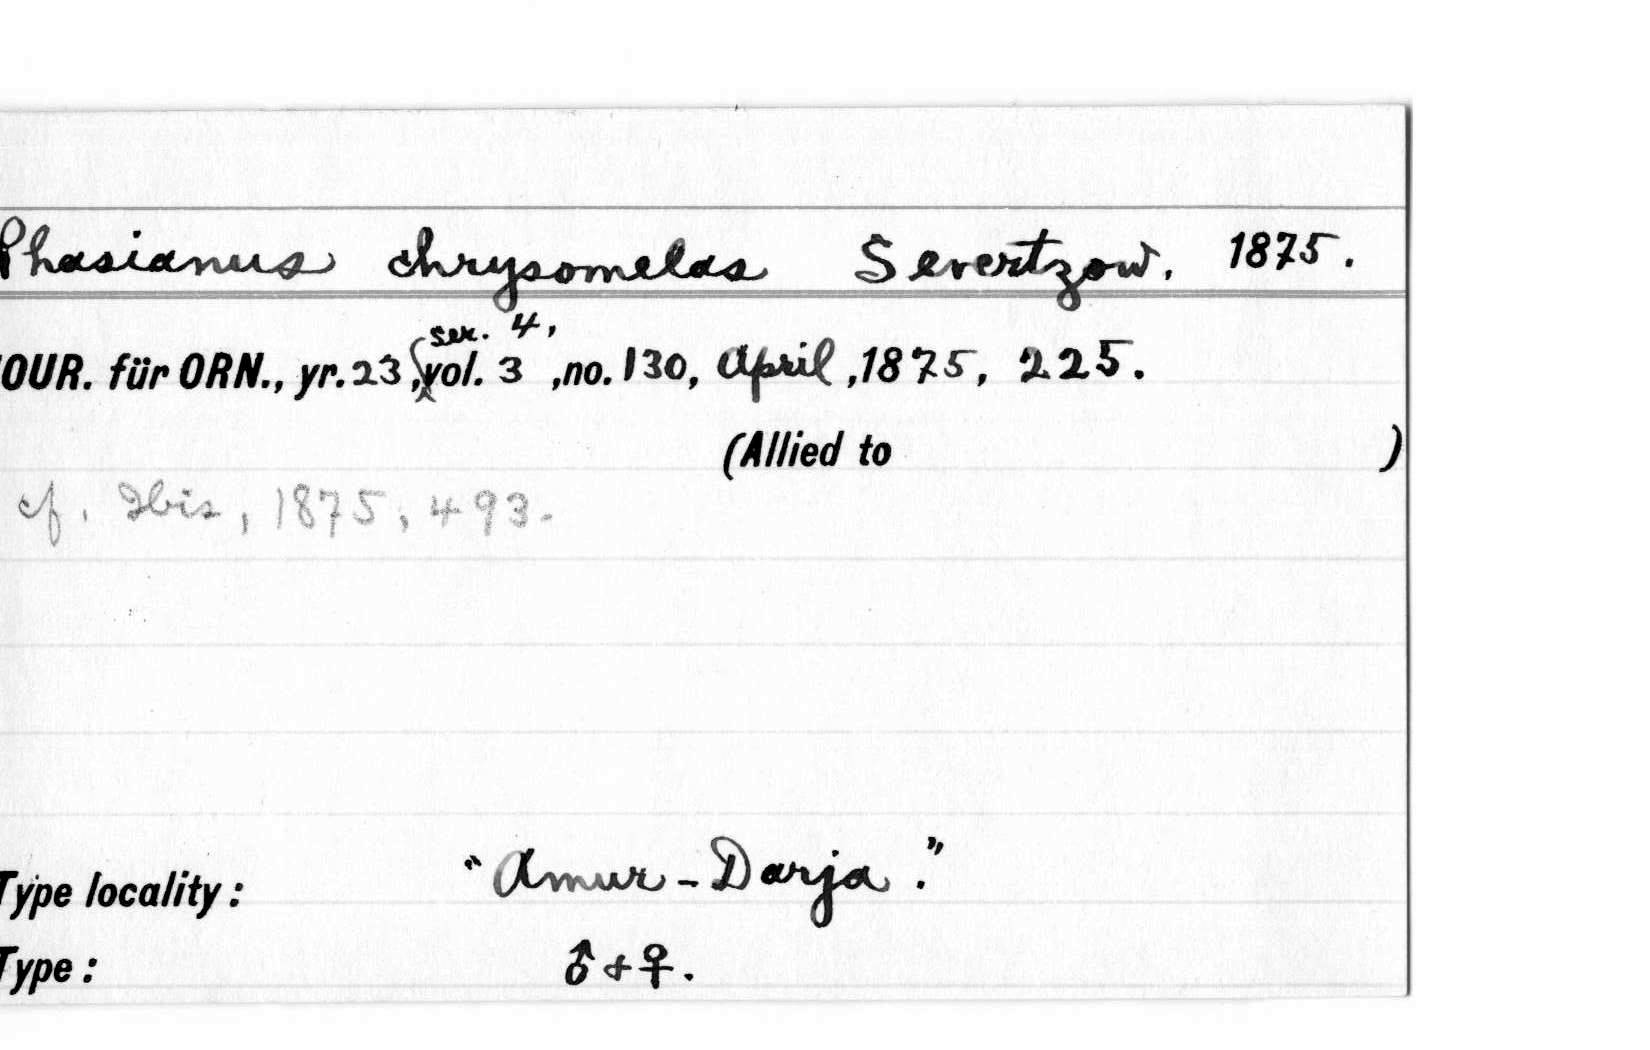 Phasianus chrysomelas Severtzow, 1875.
ser. 4,
OUR. für ORN., yr. 23, vol. 3, no. 130, April, 1875, 225.
(Allied to )
cf. Ibis, 1875, 493.
Type locality: "Amur-Darja."
Type: ♂ & ♀.